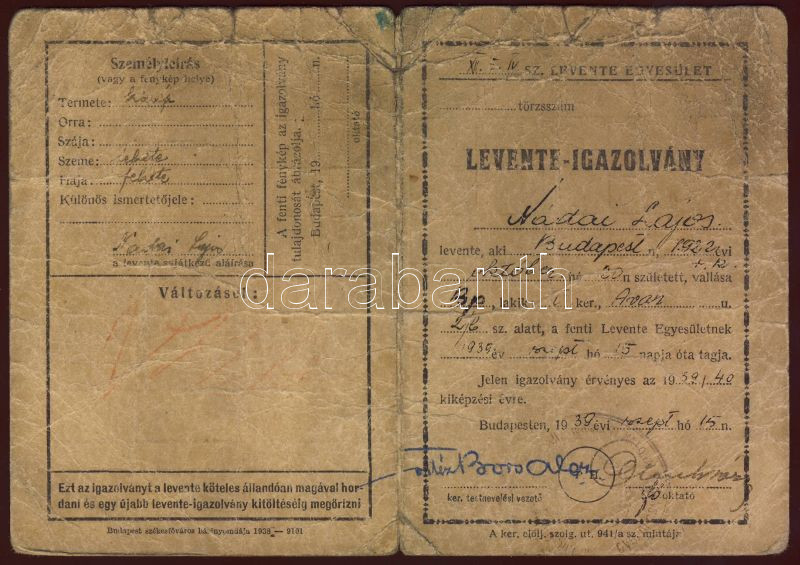 Személyleírás
(vagy a fénykép helye)
Termete:
Orra:
Szája:
Szeme: fekete
Haja: fekete
Különös ismertetőjele:
Nádai Lajos
a levente sajátkezű aláírása
A fenti fénykép az igazolvány
tulajdonosát ábrázolja.
Budapest, 19 hó n.
oktató
Változások:
Ezt az igazolványt a levente köteles állandóan magával hor-
dani és egy újabb levente-igazolvány kitöltéséig megőrizni
Budapest székesfőváros házinyomdája 1938 — 9131
SZ. LEVENTE EGYESÜLET
törzsszám
LEVENTE-IGAZOLVÁNY
Nádai Lajos
levente, aki Budapest n, 1922 évi
október hó 20 n született, vallása
Bp, lakik I. ker., Avar u.
sz. alatt, a fenti Levente Egyesületnek
1939 év szept hó 15 napja óta tagja.
Jelen igazolvány érvényes az 1939/40
kiképzési évre.
Budapesten, 1939 évi szept hó 15 n.
P. H.
ker. testnevelési vezető
oktató
A ker. előlj. szolg. ut. 941/a sz. mintája
darabanth